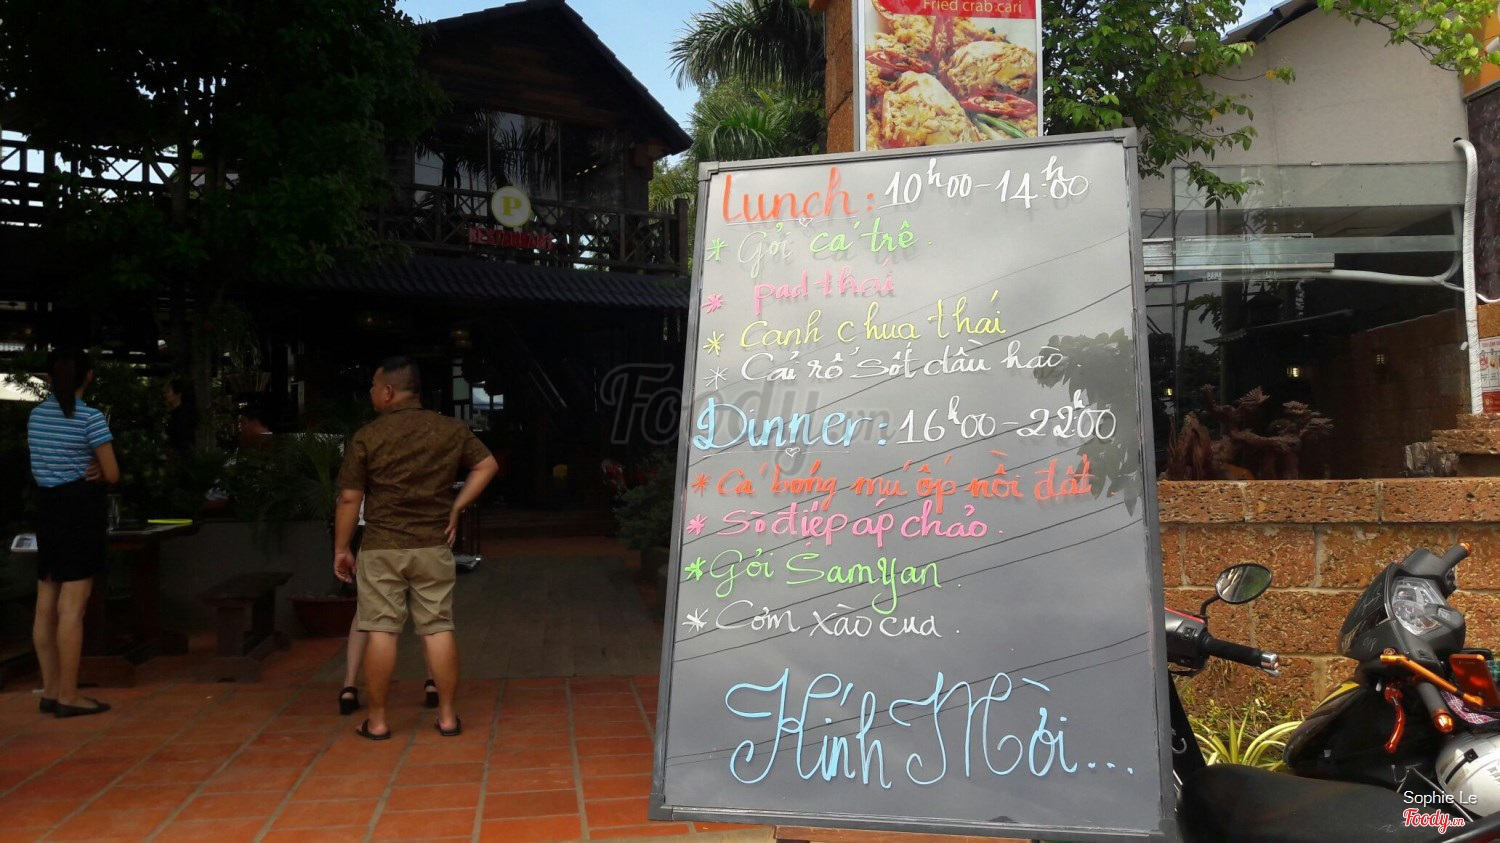 Fried crab cari
Lunch: 10h00-14h00
* Gỏi cá trê.
* pad thái
* Canh chua thái
* Cải rổ sốt dầu hào.
Dinner: 16h00-22h00
* Cá bóng mú ốp nồi đất.
* Sò điệp áp chảo.
* Gỏi SamYan.
* Cơm xào cua.
Kính Mời...
P
RESTAURANT
Foody.vn
Sophie Le
Foody.vn